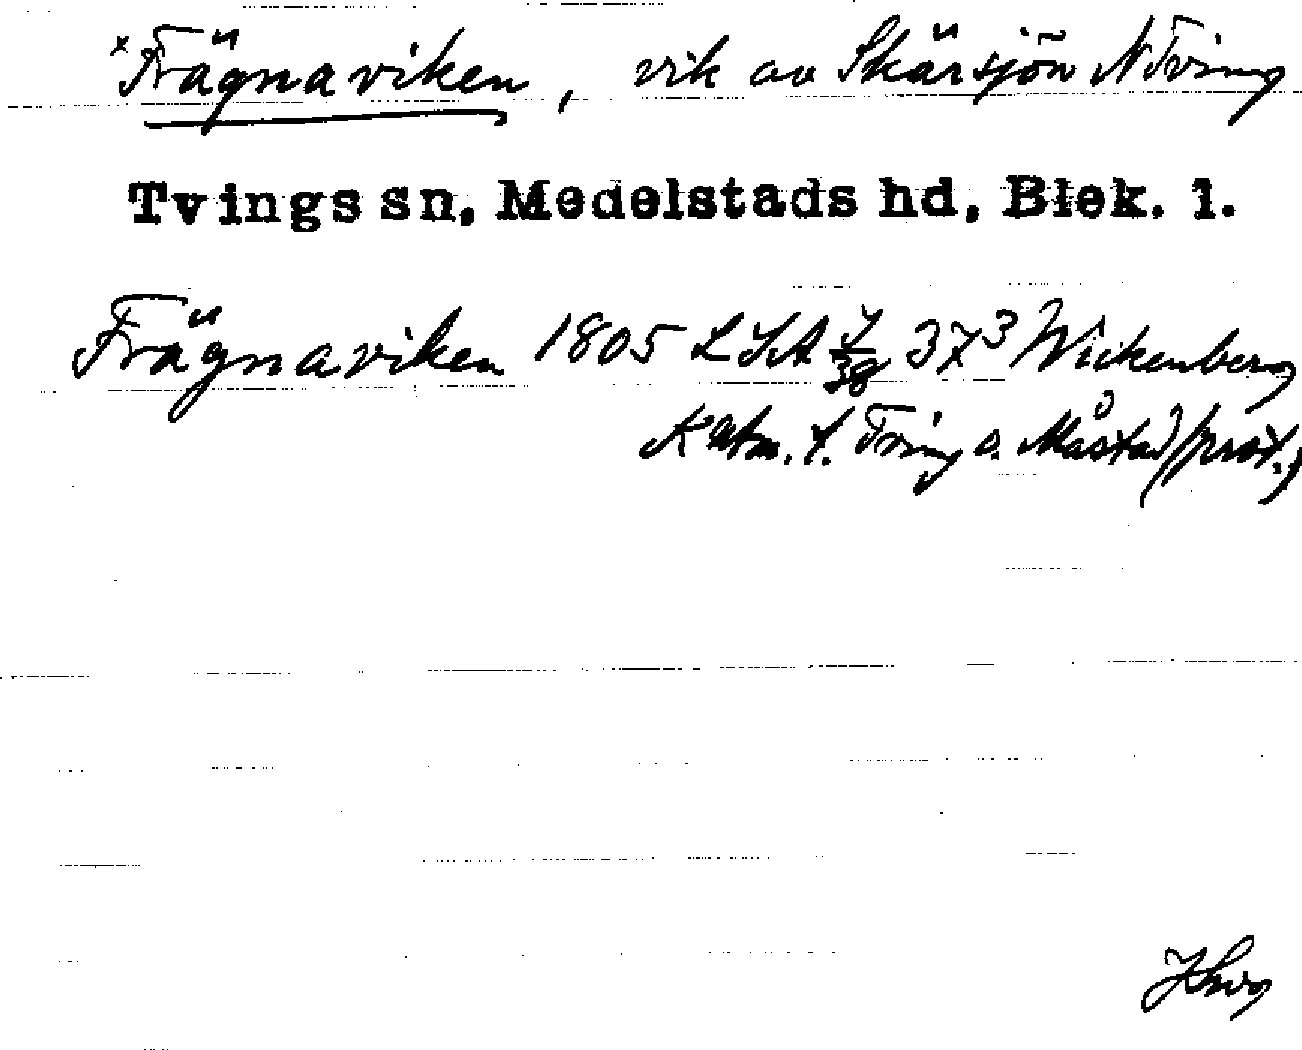 x Frägnaviken, vik av Skärsjön N Tving
Tvings sn, Medelstads hd, Blek. l.
Frägnaviken 1805 LSA 37³ Wickenberg
Tving o. Måstad (prot.)